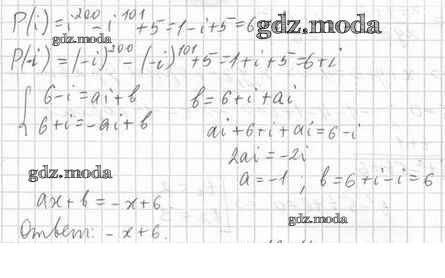 P(i) = i^200 − i^101 + 5 = 1 − i + 5 = 6 gdz.moda
gdz.moda
P(-i) = (-i)^200 − (-i)^101 + 5 = 1 + i + 5 = 6 + i
{ 6 − i = ai + b    b = 6 + i + ai
6 + i = −ai + b    ai + 6 + i + ai = 6 − i
2ai = −2i
gdz.moda    a = −1, b = 6 + i − i = 6
ax + b = −x + 6
gdz.moda
Ответ: −x + 6.